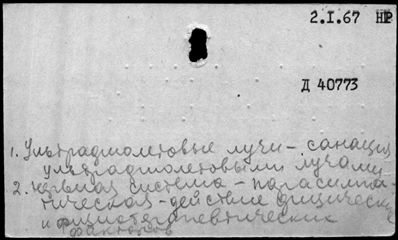 2.I.67 НР
Д 40773
1. Ультрафиолетовые лучи - санация
ультрафиолетовыми лучами
2. нервная система - парасимпа-
тическая - действие физических
и физиотерапевтических
факторов